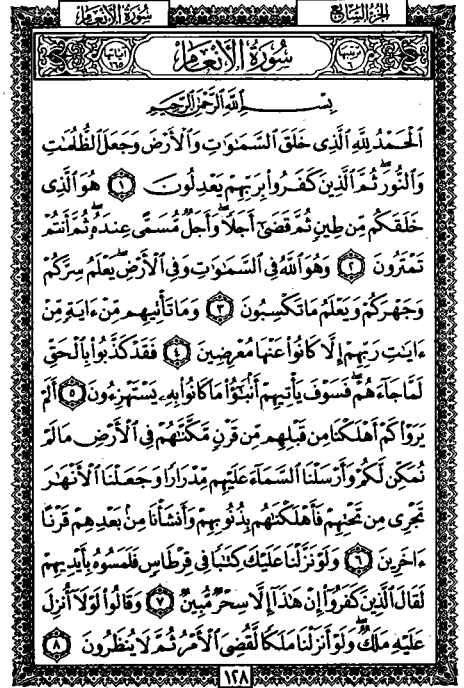 سُورَةُ الأَنْعَامِ
الجُزْءُ السَّابِعُ
سُورَةُ الأَنْعَامِ
آياتها ١٦٥
بِسْمِ ٱللَّهِ ٱلرَّحْمَٰنِ ٱلرَّحِيمِ
ٱلْحَمْدُ لِلَّهِ ٱلَّذِى خَلَقَ ٱلسَّمَٰوَٰتِ وَٱلْأَرْضَ وَجَعَلَ ٱلظُّلُمَٰتِ
وَٱلنُّورَ ۖ ثُمَّ ٱلَّذِينَ كَفَرُوا۟ بِرَبِّهِمْ يَعْدِلُونَ ١ هُوَ ٱلَّذِى
خَلَقَكُم مِّن طِينٍ ثُمَّ قَضَىٰٓ أَجَلًا ۖ وَأَجَلٌ مُّسَمًّى عِندَهُۥ ۖ ثُمَّ أَنتُمْ
تَمْتَرُونَ ٢ وَهُوَ ٱللَّهُ فِى ٱلسَّمَٰوَٰتِ وَفِى ٱلْأَرْضِ ۖ يَعْلَمُ سِرَّكُمْ
وَجَهْرَكُمْ وَيَعْلَمُ مَا تَكْسِبُونَ ٣ وَمَا تَأْتِيهِم مِّنْ ءَايَةٍ مِّنْ
ءَايَٰتِ رَبِّهِمْ إِلَّا كَانُوا۟ عَنْهَا مُعْرِضِينَ ٤ فَقَدْ كَذَّبُوا۟ بِٱلْحَقِّ
لَمَّا جَآءَهُمْ ۖ فَسَوْفَ يَأْتِيهِمْ أَنۢبَٰٓؤُا۟ مَا كَانُوا۟ بِهِۦ يَسْتَهْزِءُونَ ٥ أَلَمْ
يَرَوْا۟ كَمْ أَهْلَكْنَا مِن قَبْلِهِم مِّن قَرْنٍ مَّكَّنَّٰهُمْ فِى ٱلْأَرْضِ مَا لَمْ
نُمَكِّن لَّكُمْ وَأَرْسَلْنَا ٱلسَّمَآءَ عَلَيْهِم مِّدْرَارًا وَجَعَلْنَا ٱلْأَنْهَٰرَ
تَجْرِى مِن تَحْتِهِمْ فَأَهْلَكْنَٰهُم بِذُنُوبِهِمْ وَأَنشَأْنَا مِنۢ بَعْدِهِمْ قَرْنًا
ءَاخَرِينَ ٦ وَلَوْ نَزَّلْنَا عَلَيْكَ كِتَٰبًا فِى قِرْطَاسٍ فَلَمَسُوهُ بِأَيْدِيهِمْ
لَقَالَ ٱلَّذِينَ كَفَرُوٓا۟ إِنْ هَٰذَآ إِلَّا سِحْرٌ مُّبِينٌ ٧ وَقَالُوا۟ لَوْلَآ أُنزِلَ
عَلَيْهِ مَلَكٌ ۖ وَلَوْ أَنزَلْنَا مَلَكًا لَّقُضِىَ ٱلْأَمْرُ ثُمَّ لَا يُنظَرُونَ ٨
١٢٨